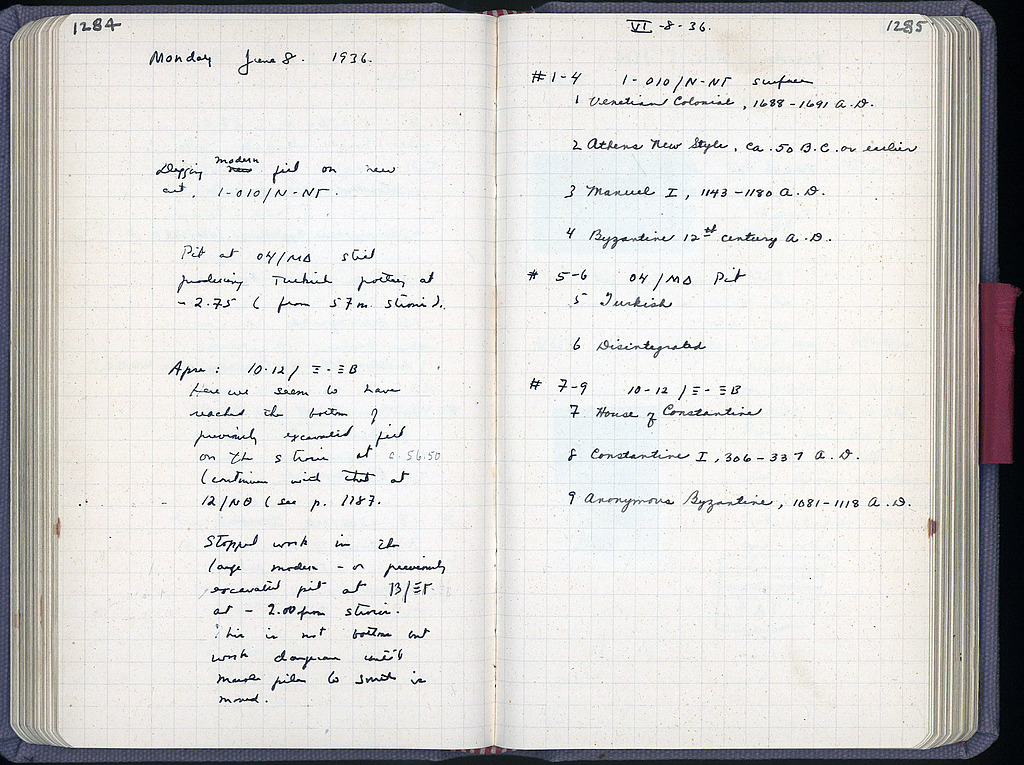 1284
Monday June 8. 1936.
modern
Digging new fill on new
cut, 1-010/N-NΓ.
Pit at 04/MΔ still
producing Turkish pottery at
- 2.75 (from 57 m. stroui).
Apre: 10-12/Ξ-ΞB
Here we seem to have
reached the bottom of
previously excavated fill
on the stroui at c. 56.50
(continuous with that at
12/NΘ (see p. 1187.
Stopped work in the
large modern - or previously
excavated pit at 13/ΞΓ
at - 2.00 from stroui.
This is not bottom but
work dangerous until
marble piles to south is
moved.
VI-8-36.
1285
#1-4 1-010/N-NΓ surface
1 Venetian Colonial, 1688-1691 A.D.
2 Athens New Style, ca. 50 B.C. or earlier
3 Manuel I, 1143-1180 A.D.
4 Byzantine 12th century A.D.
# 5-6 04/MΔ Pit
5 Turkish
6 Disintegrated
# 7-9 10-12/Ξ-ΞB
7 House of Constantine
8 Constantine I, 306-337 A.D.
9 Anonymous Byzantine, 1081-1118 A.D.